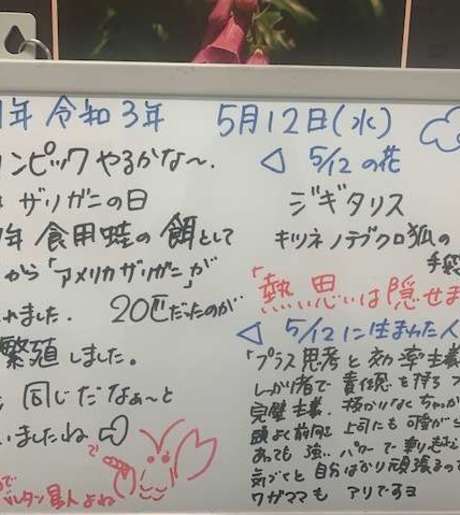 1年 令和3年 5月12日(水)
ンピックやるかな〜.
ザリガニの日
年 食用蛙の餌として
から「アメリカザリガニ」が
れました. 20匹だったのが
繁殖しました。
同じだなぁ〜と
いましたね
で
ルタン星人よね
◁ 5/12 の花
ジギタリス
キツネノテブクロ 狐の
手袋
「熱い思いは隠せま
◁ 5/12に生まれた人
「プラス思考と効率主義
しっかり者で責任感を持る
完璧主義.
頭よく前向き 上司にも可愛が
あっても強い パワーで乗り
気づくと自分ばかり頑張るの
ワガママも アリですヨ